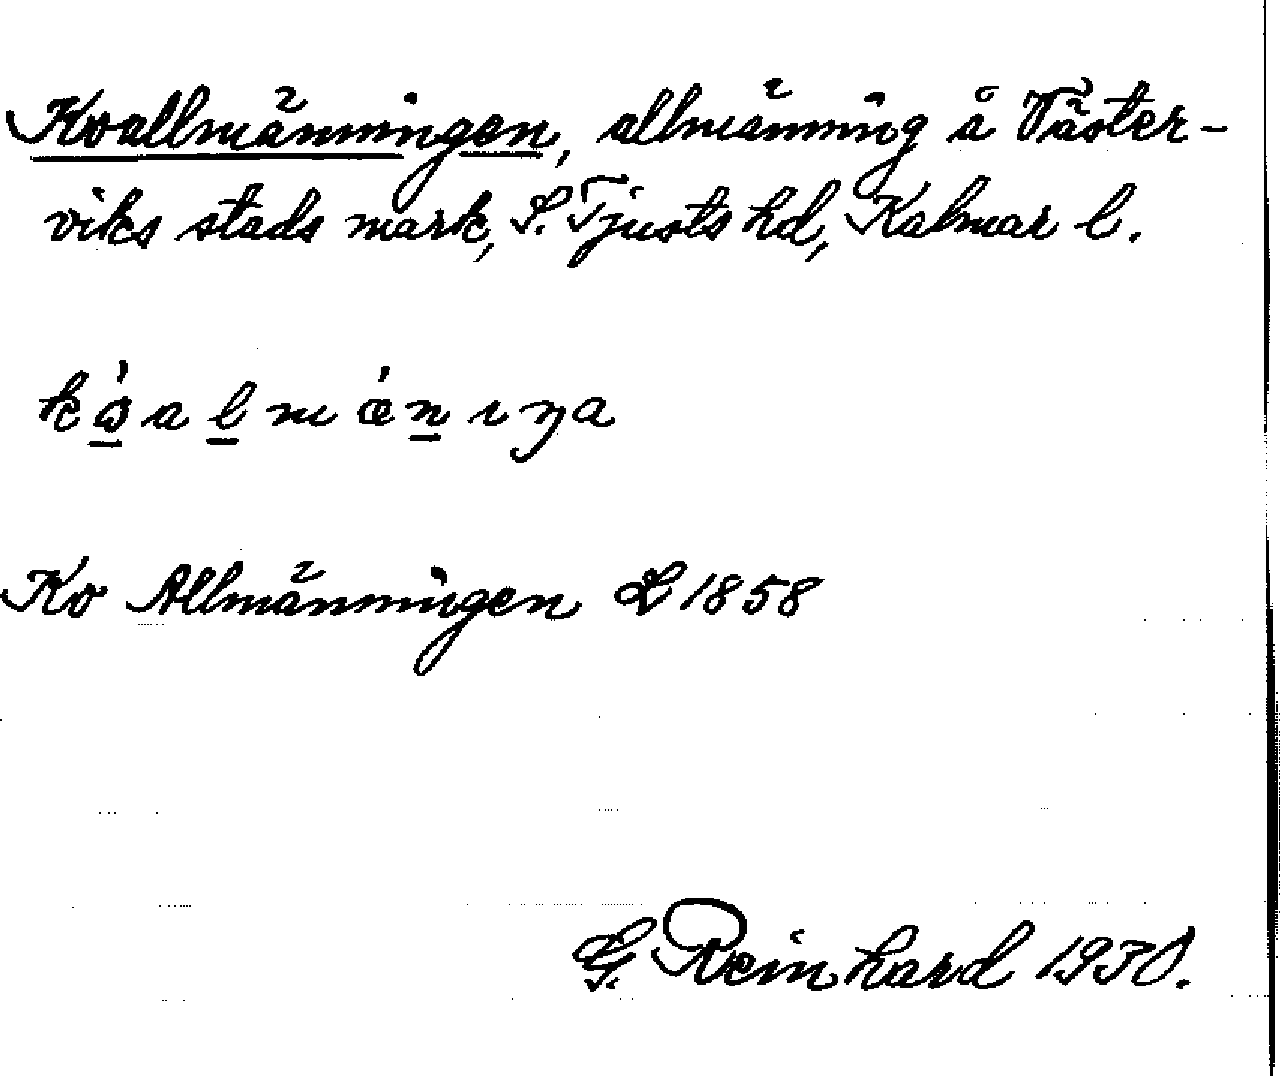 Koallmänningen, allmänning å Väster-
viks stads mark, S. Tjusts hd, Kalmar l.
kòͺalmǽnıŋa
Ko Allmänningen L 1858
G. Reinhard 1930.